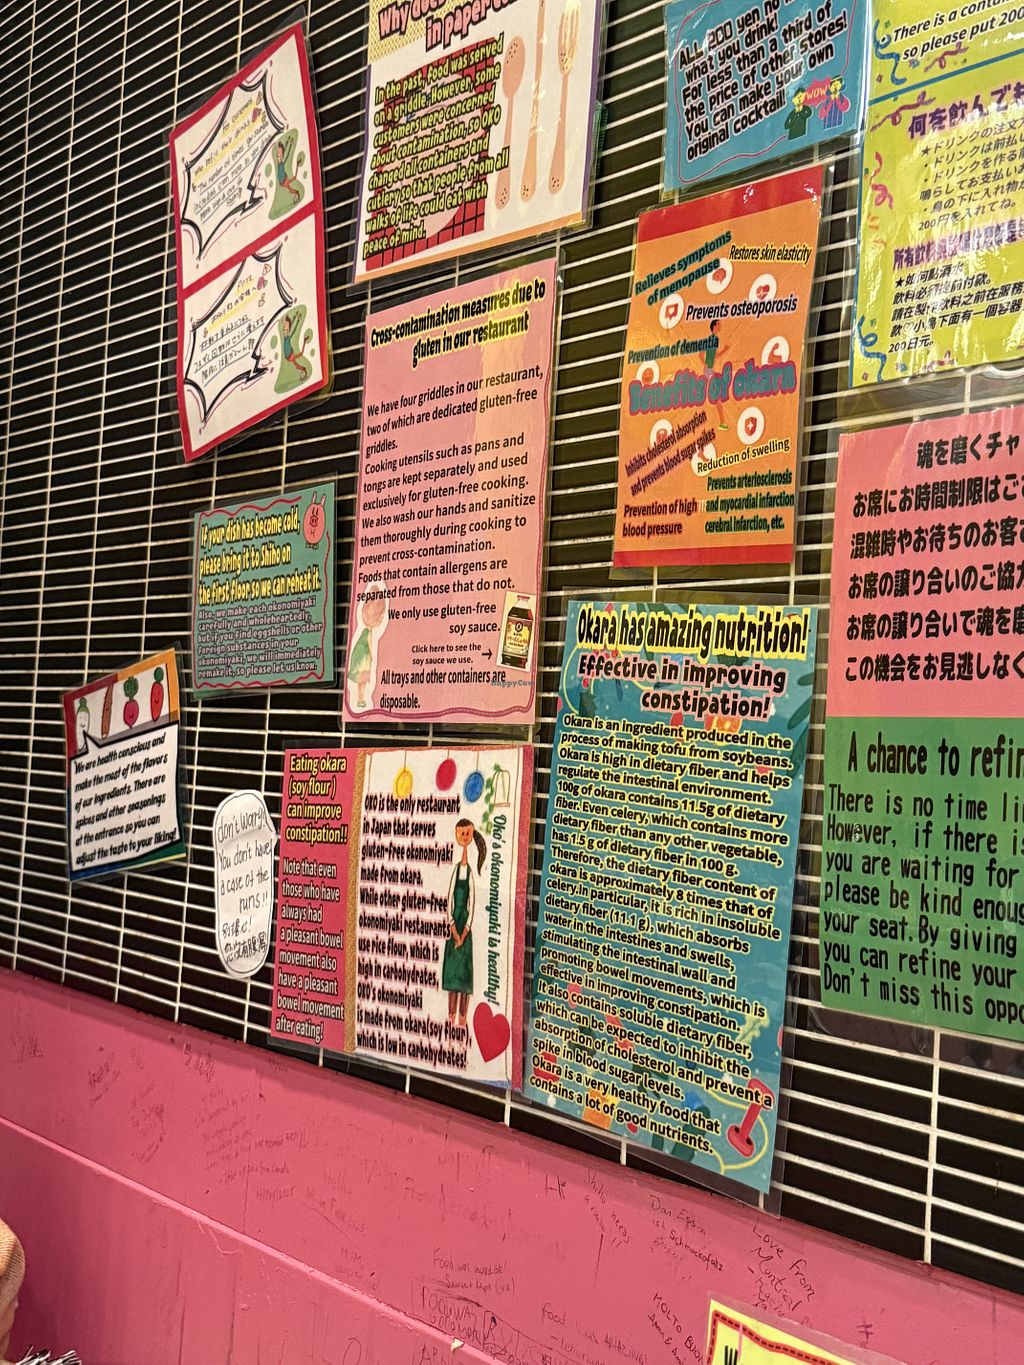 Why does
in paper
In the past, food was served
on a griddle. However, some
customers were concerned
about contamination, so OKO
changed all containers and
cutlery so that people from all
walks of life could eat with
peace of mind.
ALL 200 yen no
what you drink!
For less than a third of
the price of other stores!
You can make your own
original cocktail!
WOW
There is a conta
so please put 200
何を飲んでも
★ドリンクの注文
・ドリンクは前払い
・ドリンクを作る
鳴らしてお支払い
・鳥の下に入れ物
200円を入れてね。
★如何點酒
飲料必須提前付款。
請在製作飲料之前在服務
200日元。
Cross-contamination measures due to
gluten in our restaurant
We have four griddles in our restaurant,
two of which are dedicated gluten-free
griddles.
Cooking utensils such as pans and
tongs are kept separately and used
exclusively for gluten-free cooking.
We also wash our hands and sanitize
them thoroughly during cooking to
prevent cross-contamination.
Foods that contain allergens are
separated from those that do not.
We only use gluten-free
soy sauce.
Click here to see the
soy sauce we use.
All trays and other containers are
disposable.
HappyCow
Relieves symptoms
of menopause
Restores skin elasticity
Prevents osteoporosis
Prevention of dementia
Benefits of okara
Inhibits cholesterol absorption
and prevents blood sugar spikes
Reduction of swelling
Prevention of high
blood pressure
Prevents arteriosclerosis
and myocardial infarction
cerebral infarction, etc.
魂を磨くチャ
お席にお時間制限はご
混雑時やお待ちのお客
お席の譲り合いのご協力
お席の譲り合いで魂を磨
この機会をお見逃しなく
A chance to refin
There is no time li
However, if there is
you are waiting for
please be kind enoug
your seat.By giving
you can refine your
Don't miss this oppo
If your dish has become cold,
please bring it to Shiho on
the first floor so we can reheat it.
Also, we make each okonomiyaki
carefully and wholeheartedly,
but if you find eggshells or other
foreign substances in your
okonomiyaki, we will immediately
remake it, so please let us know.
We are health conscious and
make the most of the flavors
of our ingredients. There are
spices and other seasonings
at the entrance so you can
adjust the taste to your liking!
don't worry!
You don't have
a case of the
runs!!
Eating okara
(soy flour)
can improve
constipation!!
Note that even
those who have
always had
a pleasant bowel
movement also
have a pleasant
bowel movement
after eating!
OKO is the only restaurant
in Japan that serves
gluten-free okonomiyaki
made from okara.
While other gluten-free
okonomiyaki restaurants
use rice flour, which is
high in carbohydrates,
OKO's okonomiyaki
is made from okara(soy flour),
which is low in carbohydrates!
Oko's okonomiyaki is healthy!
Okara has amazing nutrition!
Effective in improving
constipation!
Okara is an ingredient produced in the
process of making tofu from soybeans.
Okara is high in dietary fiber and helps
regulate the intestinal environment.
100g of okara contains 11.5g of dietary
fiber. Even celery, which contains more
dietary fiber than any other vegetable,
has 1.5 g of dietary fiber in 100 g.
Therefore, the dietary fiber content of
okara is approximately 8 times that of
celery.In particular, it is rich in insoluble
dietary fiber (11.1 g), which absorbs
water in the intestines and swells,
stimulating the intestinal wall and
promoting bowel movements, which is
effective in improving constipation.
It also contains soluble dietary fiber,
which can be expected to inhibit the
absorption of cholesterol and prevent a
spike in blood sugar levels.
Okara is a very healthy food that
contains a lot of good nutrients.
Love from
Montreal
Food was